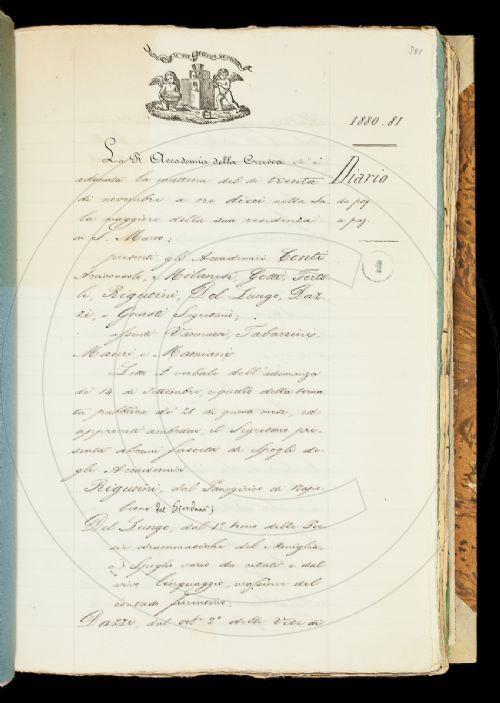 381
1880-81
Diario
da pag.
a pag.
1
La R. Accademia della Crusca si è
adunata la mattina del dì trenta
di novembre a ore dieci nella Sa-
la maggiore della sua residenza
in S. Marco;
presenti gli Accademici Conti
Arciconsolo, Milanesi, Gotti, Torto-
li, Rigutini, Del Lungo, Daz-
zi, e Guasti Segretario;
assenti Vannucci, Tabarrini,
Mauri e Mamiani.
Letti il verbale dell'adunanza
di 14 di settembre, e quello della torna-
ta pubblica de' 21 di questo mese, ed
approvati ambedue, il Segretario pre-
senta alcuni fascetti di Spogli de-
gli Accademici
Rigutini, dal Panegirico di Napo-
leone del Giordani;
Del Lungo, dal 1° tomo delle Poe-
sie drammatiche del Moniglia,
e Spoglio vario da citati e dal
vivo linguaggio, massime del
contado fiorentino;
Dazzi, dal vol. 2° delle Vite di